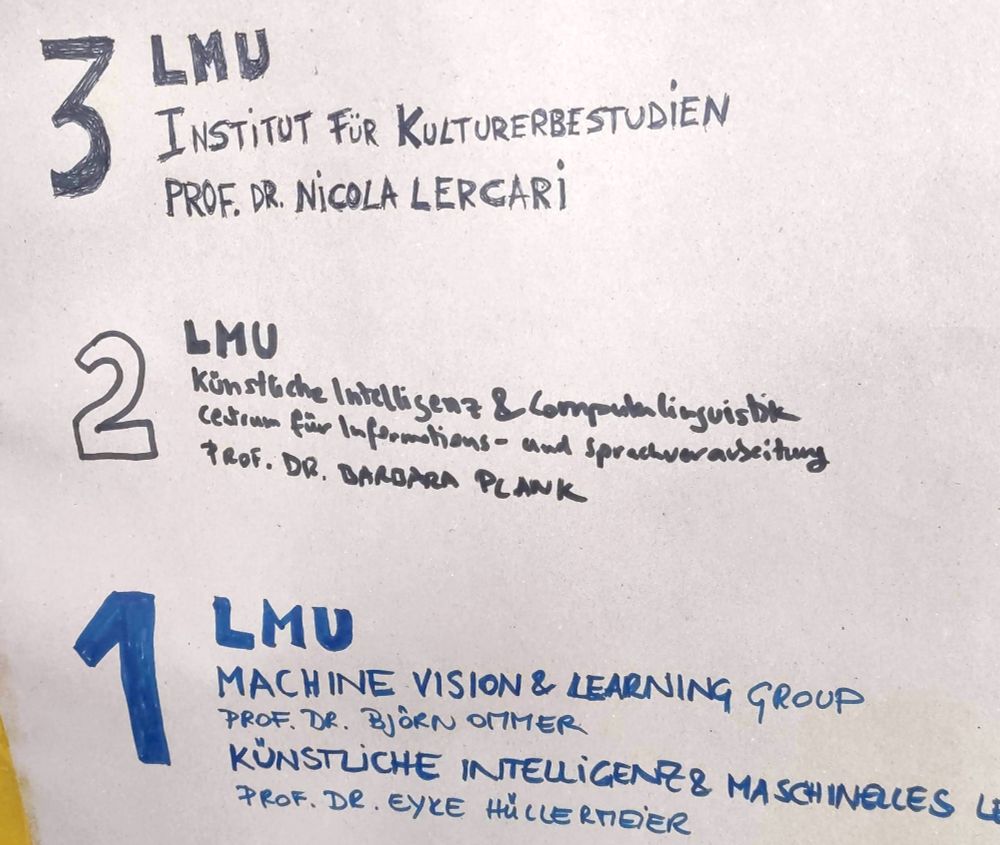 3 LMU
INSTITUT FÜR KULTURERBESTUDIEN
PROF. DR. NICOLA LERCARI
2 LMU
Künstliche Intelligenz & Computerlinguistik
Centrum für Informations- und Sprachverarbeitung
PROF. DR. BARBARA PLANK
1 LMU
MACHINE VISION & LEARNING GROUP
PROF. DR. BJÖRN OMMER
KÜNSTLICHE INTELLIGENZ & MASCHINELLES LE
PROF. DR. EYKE HÜLLERMEIER